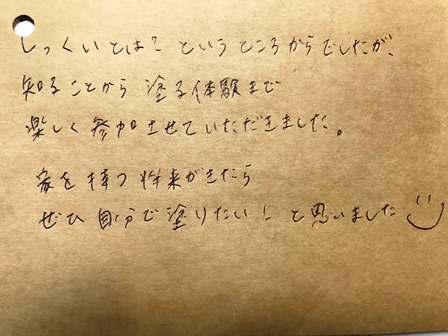 しっくいとは？というところからでしたが、
知ることから塗る体験まで
楽しく参加させていただきました。
家を持つ将来がきたら
ぜひ自分で塗りたい！と思いました